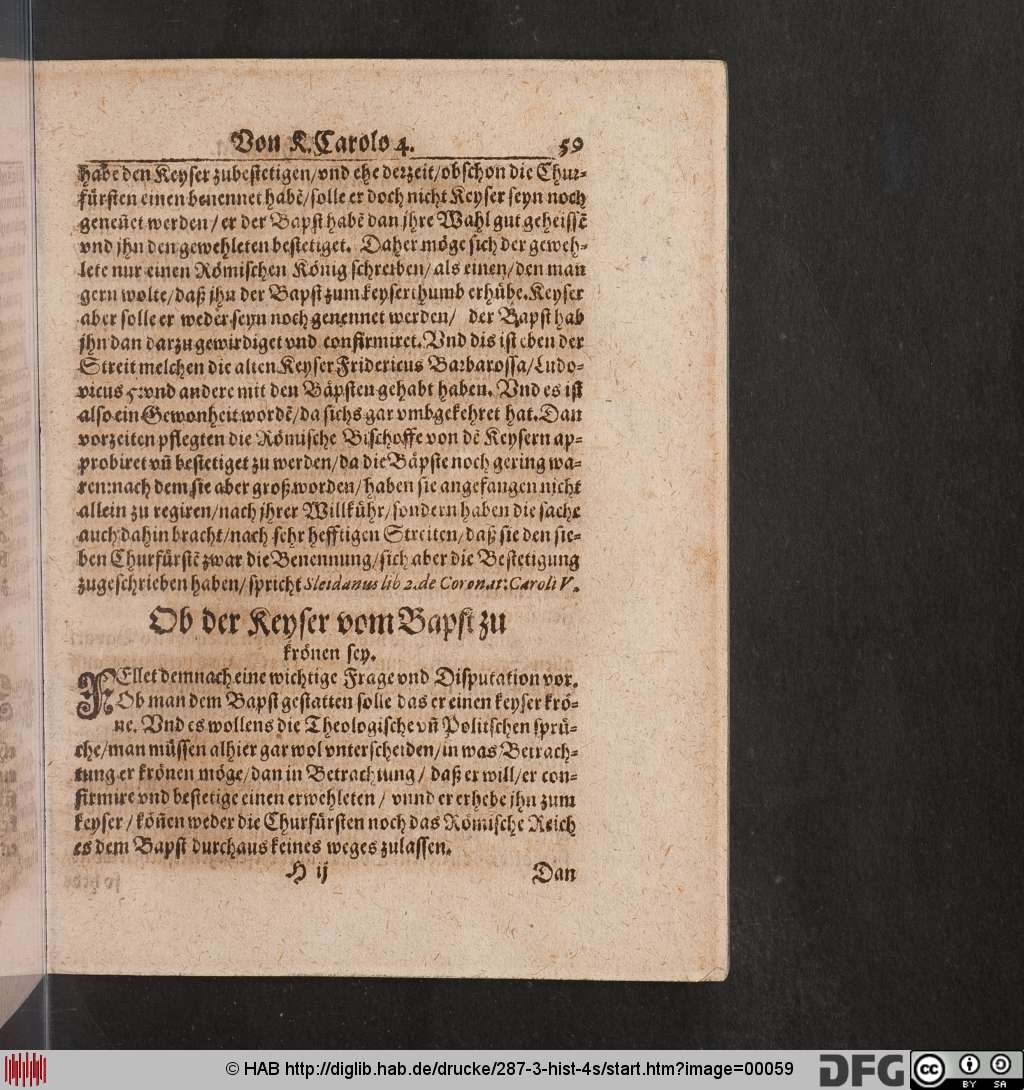 Von K. Carolo 4. 59
habe den Keyser zubestetigen/vnd ehe derzeit/obschon die Chur-
fürsten einen benennet habẽ/solle er doch nicht Keyser seyn noch
geneñet werden/er der Bapst habẽ dan jhre Wahl gut geheissẽ
vnd jhn den gewehleten bestetiget. Daher möge sich der geweh-
lete nur einen Römischen König schreiben/als einen/den man
gern wolte/daß jhn der Bapst zum keyserthumb erhübe. Keyser
aber solle er weder seyn noch genennet werden/ der Bapst hab
jhn dan darzu gewirdiget vnd confirmiret. Vnd dis ist eben der
Streit welchen die alten Keyser Fridericus Barbarossa/Ludo-
vicus 5. vnd andere mit den Bäpsten gehabt haben. Vnd es ist
also ein Gewonheit wordẽ/da sichs gar vmbgekehret hat. Dan
vorzeiten pflegten die Römische Bischoffe von dẽ Keysern ap-
probiret vñ bestetiget zu werden/da die Bäpste noch gering wa-
ren: nach dem sie aber groß worden/haben sie angefangen nicht
allein zu regiren/nach jhrer Willkühr/sondern haben die sache
auch dahin bracht/nach sehr hefftigen Streiten/daß sie den sie-
ben Churfürstẽ zwar die Benennung/sich aber die Bestetigung
zugeschrieben haben/spricht Sleidanus lib 2. de Coronat: Caroli V.
Ob der Keyser vom Bapst zu
krönen sey.
FEllet demnach eine wichtige Frage vnd Disputation vor.
Ob man dem Bapst gestatten solle das er einen keyser krö-
ne. Vnd es wollens die Theologische vñ Politschen sprü-
che/man müssen alhier gar wol vnterscheiden/in was Betrach-
tung er krönen möge/dan in Betrachtung/ daß er will/er con-
firmire vnd bestetige einen erwehleten/ vnnd er erhebe jhn zum
keyser/köñen weder die Churfürsten noch das Römische Reich
es dem Bapst durchaus keines weges zulassen.
H ij Dan
© HAB http://diglib.hab.de/drucke/287-3-hist-4s/start.htm?image=00059
DFG
cc BY SA